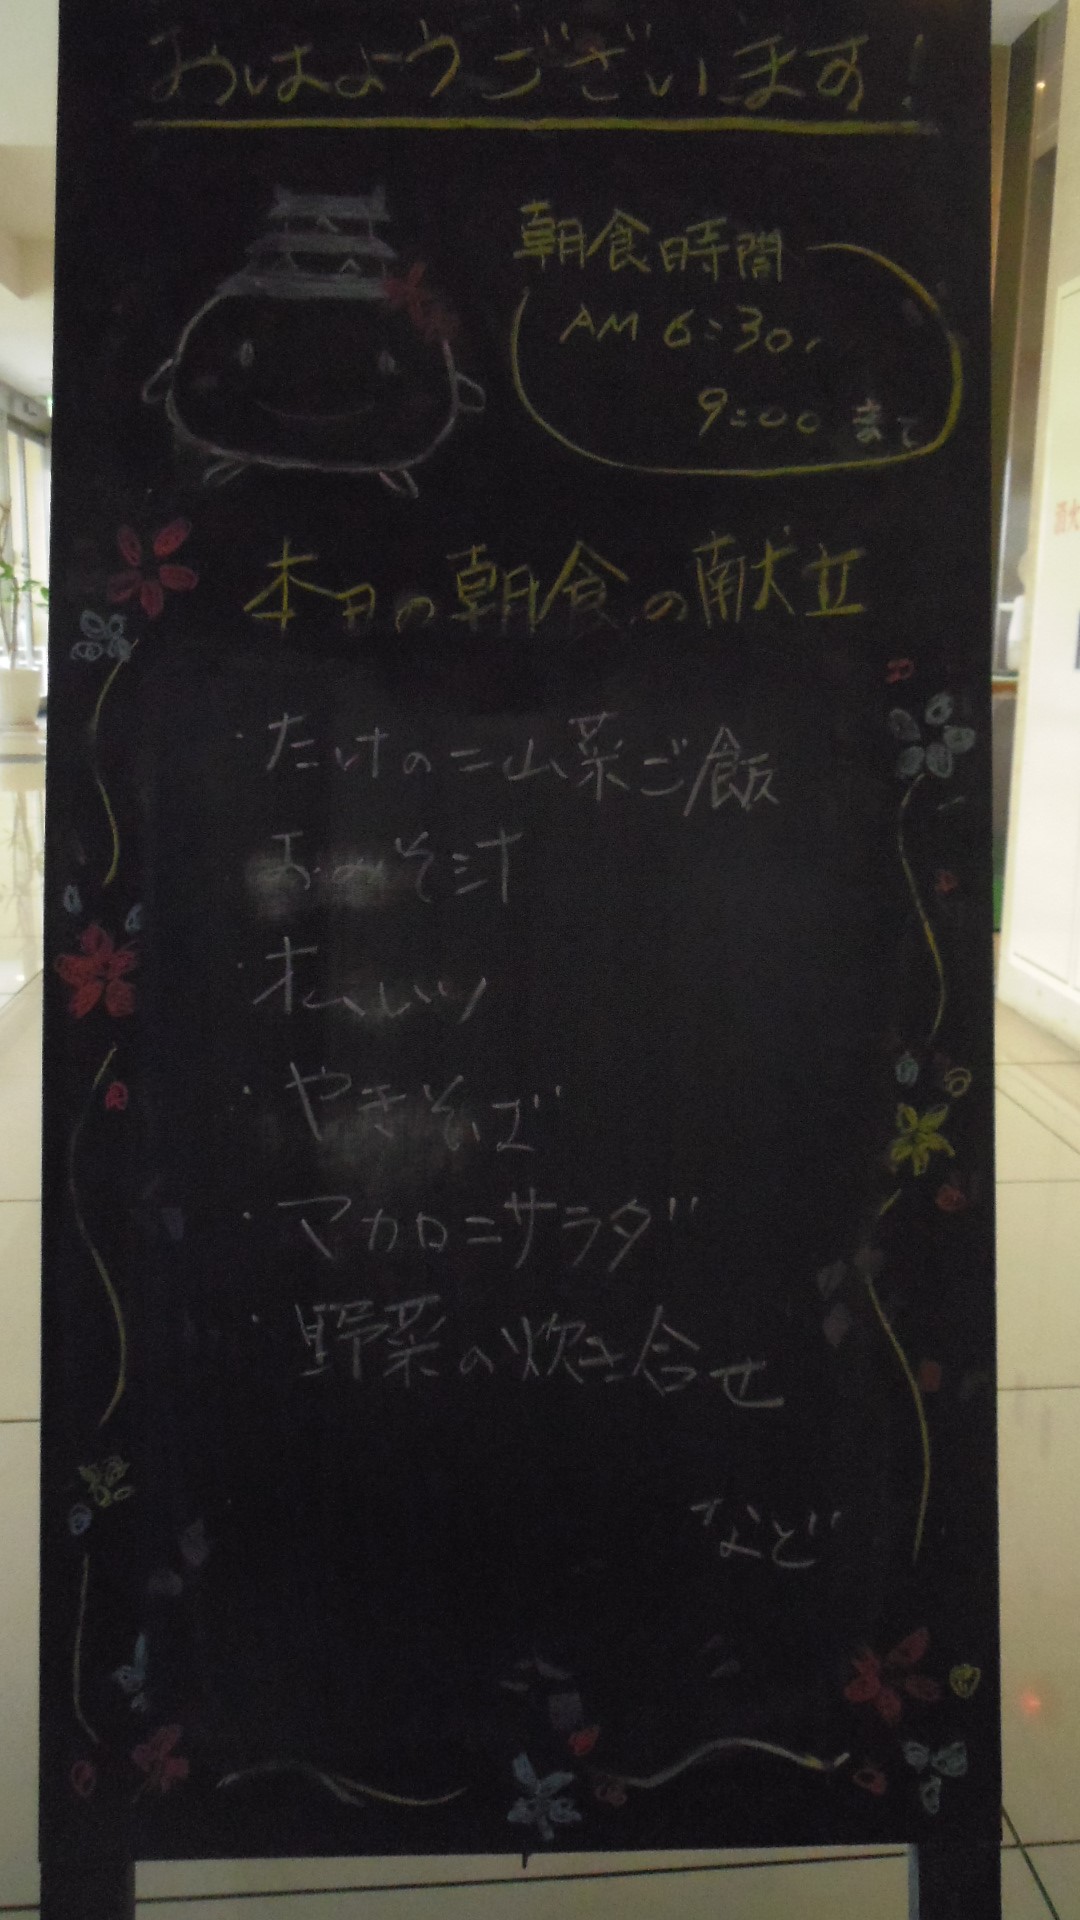 おはようございます!
朝食時間
AM 6:30~
9:00 まで
本日の朝食の献立
・たけのこ山菜ご飯
おみそ汁
・オムレツ
・やきそば
・マカロニサラダ
・野菜の炊き合せ
など